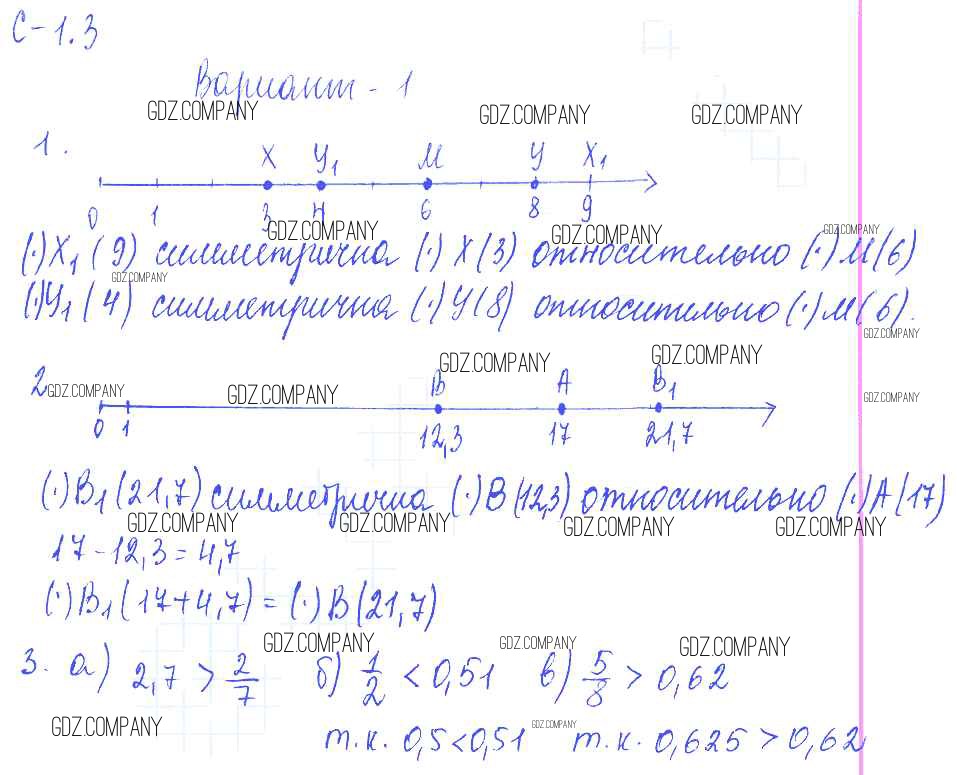 С-1.3
Вариант - 1
GDZ.COMPANY GDZ.COMPANY GDZ.COMPANY
1.
X У₁ М У X₁
0 1 3 4 6 8 9
GDZ.COMPANY GDZ.COMPANY GDZ.COMPANY
(·)X₁(9) симметрична (·)X(3) относительно (·)М(6)
GDZ.COMPANY
(·)У₁(4) симметрична (·)У(8) относительно (·)М(6).
GDZ.COMPANY
GDZ.COMPANY GDZ.COMPANY
2 GDZ.COMPANY GDZ.COMPANY B A B₁ GDZ.COMPANY
0 1 12,3 17 21,7
(·)B₁(21,7) симметрична (·)B(12,3) относительно (·)A(17)
GDZ.COMPANY GDZ.COMPANY GDZ.COMPANY GDZ.COMPANY
17-12,3=4,7
(·)B₁(17+4,7)=(·)B(21,7)
GDZ.COMPANY GDZ.COMPANY GDZ.COMPANY
3. а) 2,7 > 2/7 б) 1/2 < 0,51 в) 5/8 > 0,62
GDZ.COMPANY GDZ.COMPANY
т.к. 0,5<0,51 т.к. 0,625>0,62